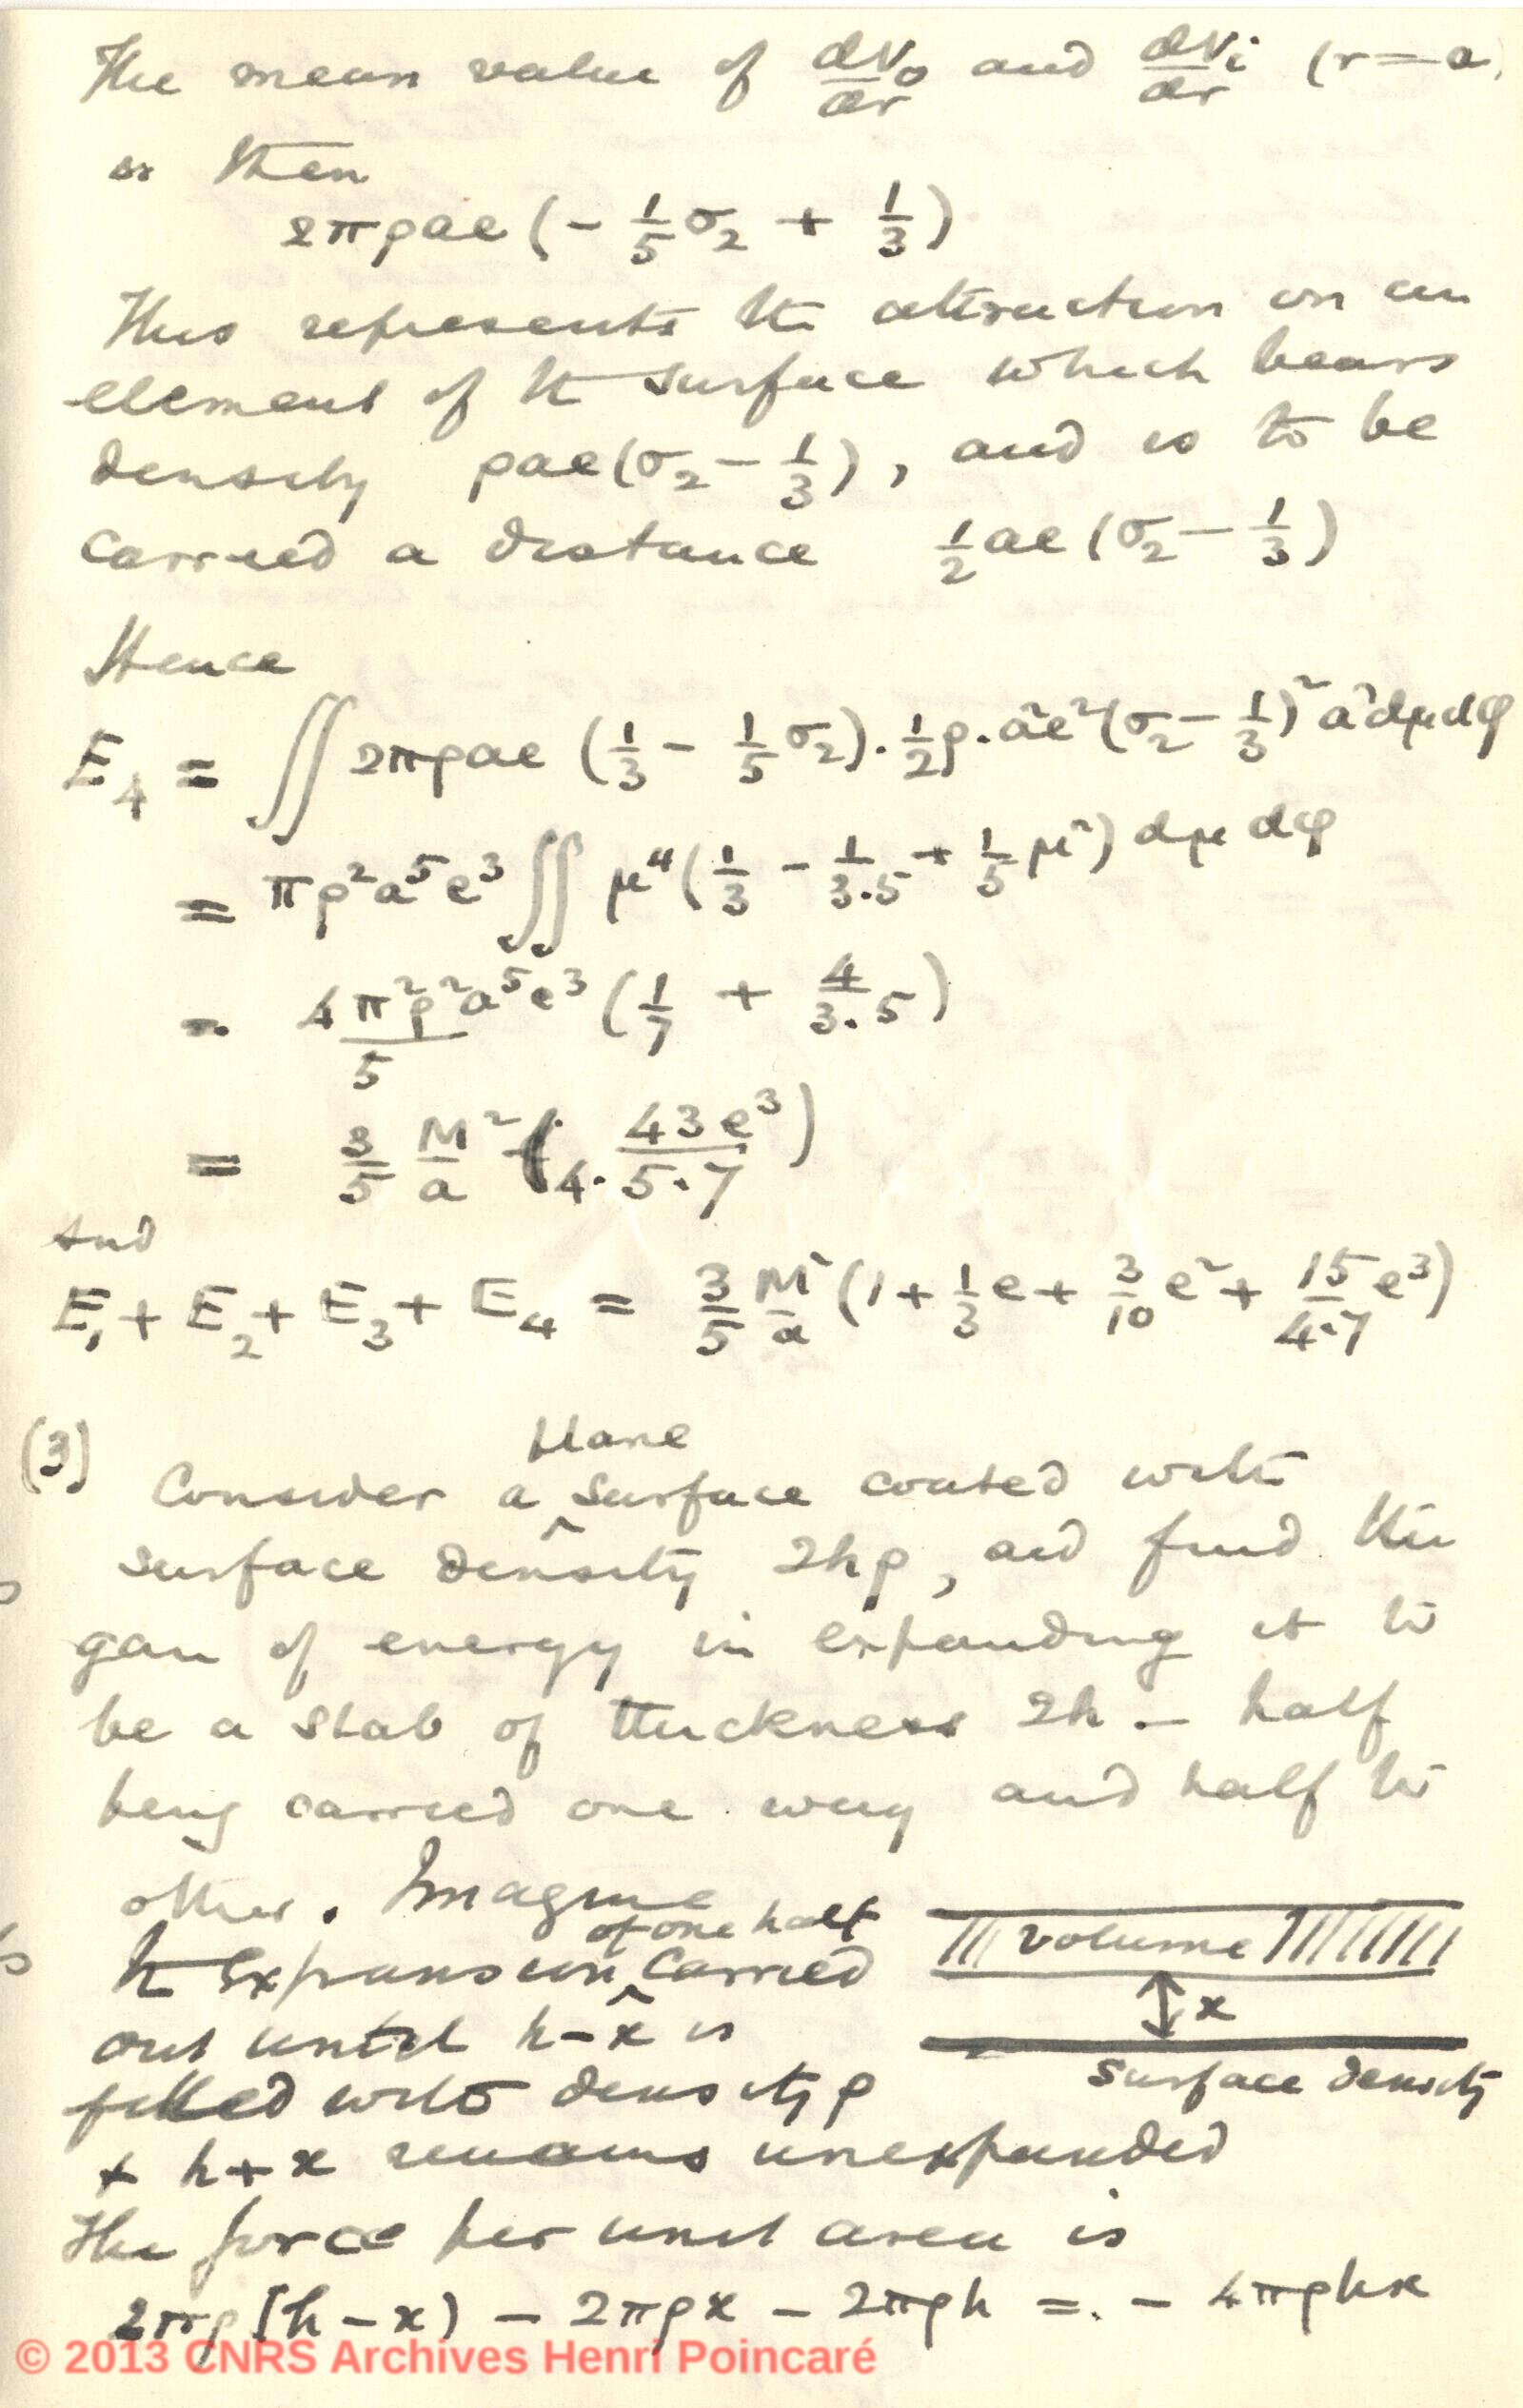 The mean value of dV₀/dr and dVᵢ/dr (r=a)
is then
2πρae(- 1/5 σ₂ + 1/3)
This represents the attraction on an
element of the surface which bears
density ρae(σ₂ - 1/3), and is to be
carried a distance 1/2 ae(σ₂ - 1/3)
Hence
E₄ = ∬ 2πρae (1/3 - 1/5 σ₂) · 1/2 ρ · a²e²(σ₂ - 1/3)² a²dμdφ
= πρ²a⁵e³ ∬ μ⁴(1/3 - 1/3.5 + 1/5 μ²) dμ dφ
= 4π²ρ²a⁵e³/5 (1/7 + 4/3.5)
= 3/5 M²/a (43e³/4.5.7)
And
E₁ + E₂ + E₃ + E₄ = 3/5 M²/a (1 + 1/3 e + 3/10 e² + 15/4.7 e³)
(3)
plane
Consider a ^ surface coated with
surface density 2hρ, and find the
gain of energy in expanding it to
be a slab of thickness 2h – half
being carried one way and half the
other. Imagine
of one half
the expansion ^ carried
out until h-x is
filled with density ρ
+ h+x remains unexpanded
volume
x
surface density
The force per unit area is
2πρ(h-x) - 2πρx - 2πρh = - 4πρhx
© 2013 CNRS Archives Henri Poincaré